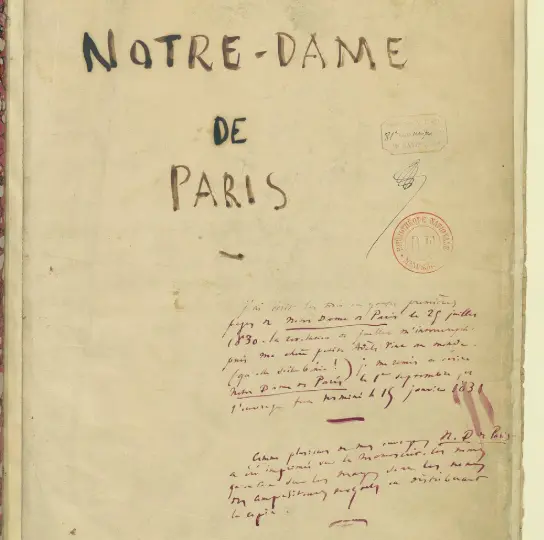 NOTRE-DAME
DE
PARIS
J'ai écrit les trois ou quatre premières
pages de Notre Dame de Paris le 25 juillet
1830. la révolution de juillet m'interrompit.
puis ma chère petite Adèle vint au monde.
(qu'elle soit bénie!) je me remis à écrire
Notre Dame de Paris le 1er septembre, et
l'ouvrage fut terminé le 15 janvier 1831
Comme plusieurs de mes ouvrages N. D. de Paris
a été imprimé sur le manuscrit. les noms
qu'on lit dans les marges sont les noms
des compositeurs auxquels on distribuait
la copie.